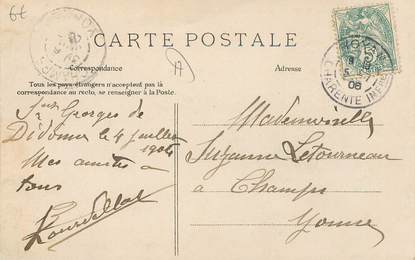 6€
CARTE POSTALE
Correspondance
Adresse
Tous les pays étrangers n'acceptent pas la
correspondance au recto, se renseigner à la Poste.
A
ROYAN
06
CHARENTE INFRE
St Georges de
Didonne le 4 juillet
1906
Mes amitiés à
tous
Mademoiselle
Suzanne Letourneau
à Champs
Yonne